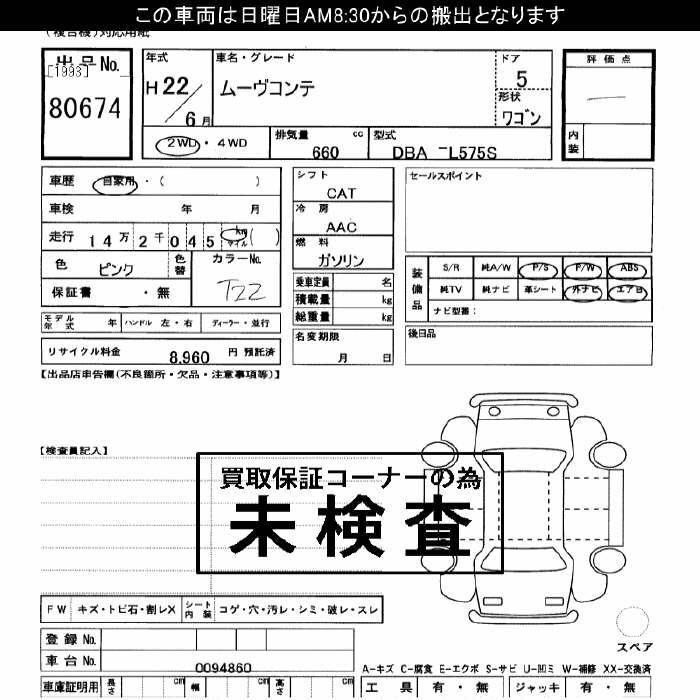 この車両は日曜日AM8:30からの搬出となります
(複合機)対応用紙
出品No.
[1993]
80674
年式
H22/6月
車名・グレード
ムーヴコンテ
ドア
5
形状
ワゴン
評価点
内装
2WD・4WD
排気量 cc
660
型式
DBA -L575S
車歴 自家用・( )
車検 年 月
走行 14万2千045 km マイル ( )
色 ピンク 色替
カラーNo.
T22
保証書 ・無
シフト
CAT
冷房
AAC
燃料
ガソリン
乗車定員 名
積載量 kg
総重量 kg
セールスポイント
装備品
S/R 純A/W P/S P/W ABS
純TV 純ナビ 革シート 外ナビ エアB
ナビ型番:
モデル年式 年 ハンドル 左・右 ディーラー・並行
リサイクル料金 8,960 円 預託済
名変期限
月 日
後日品
【出品店申告欄(不良箇所・欠品・注意事項等)】
【検査員記入】
買取保証コーナーの為
未検査
FW キズ・トビ石・割レX シート内装 コゲ・穴・汚レ・シミ・破レ・スレ
登録No.
車台No. 0094860
スペア
A-キズ C-腐食 E-エクボ S-サビ U-凹ミ W-補修 XX-交換済
車庫証明用 長さ cm 幅 cm 高さ cm
工具 有・無 ジャッキ 有・無